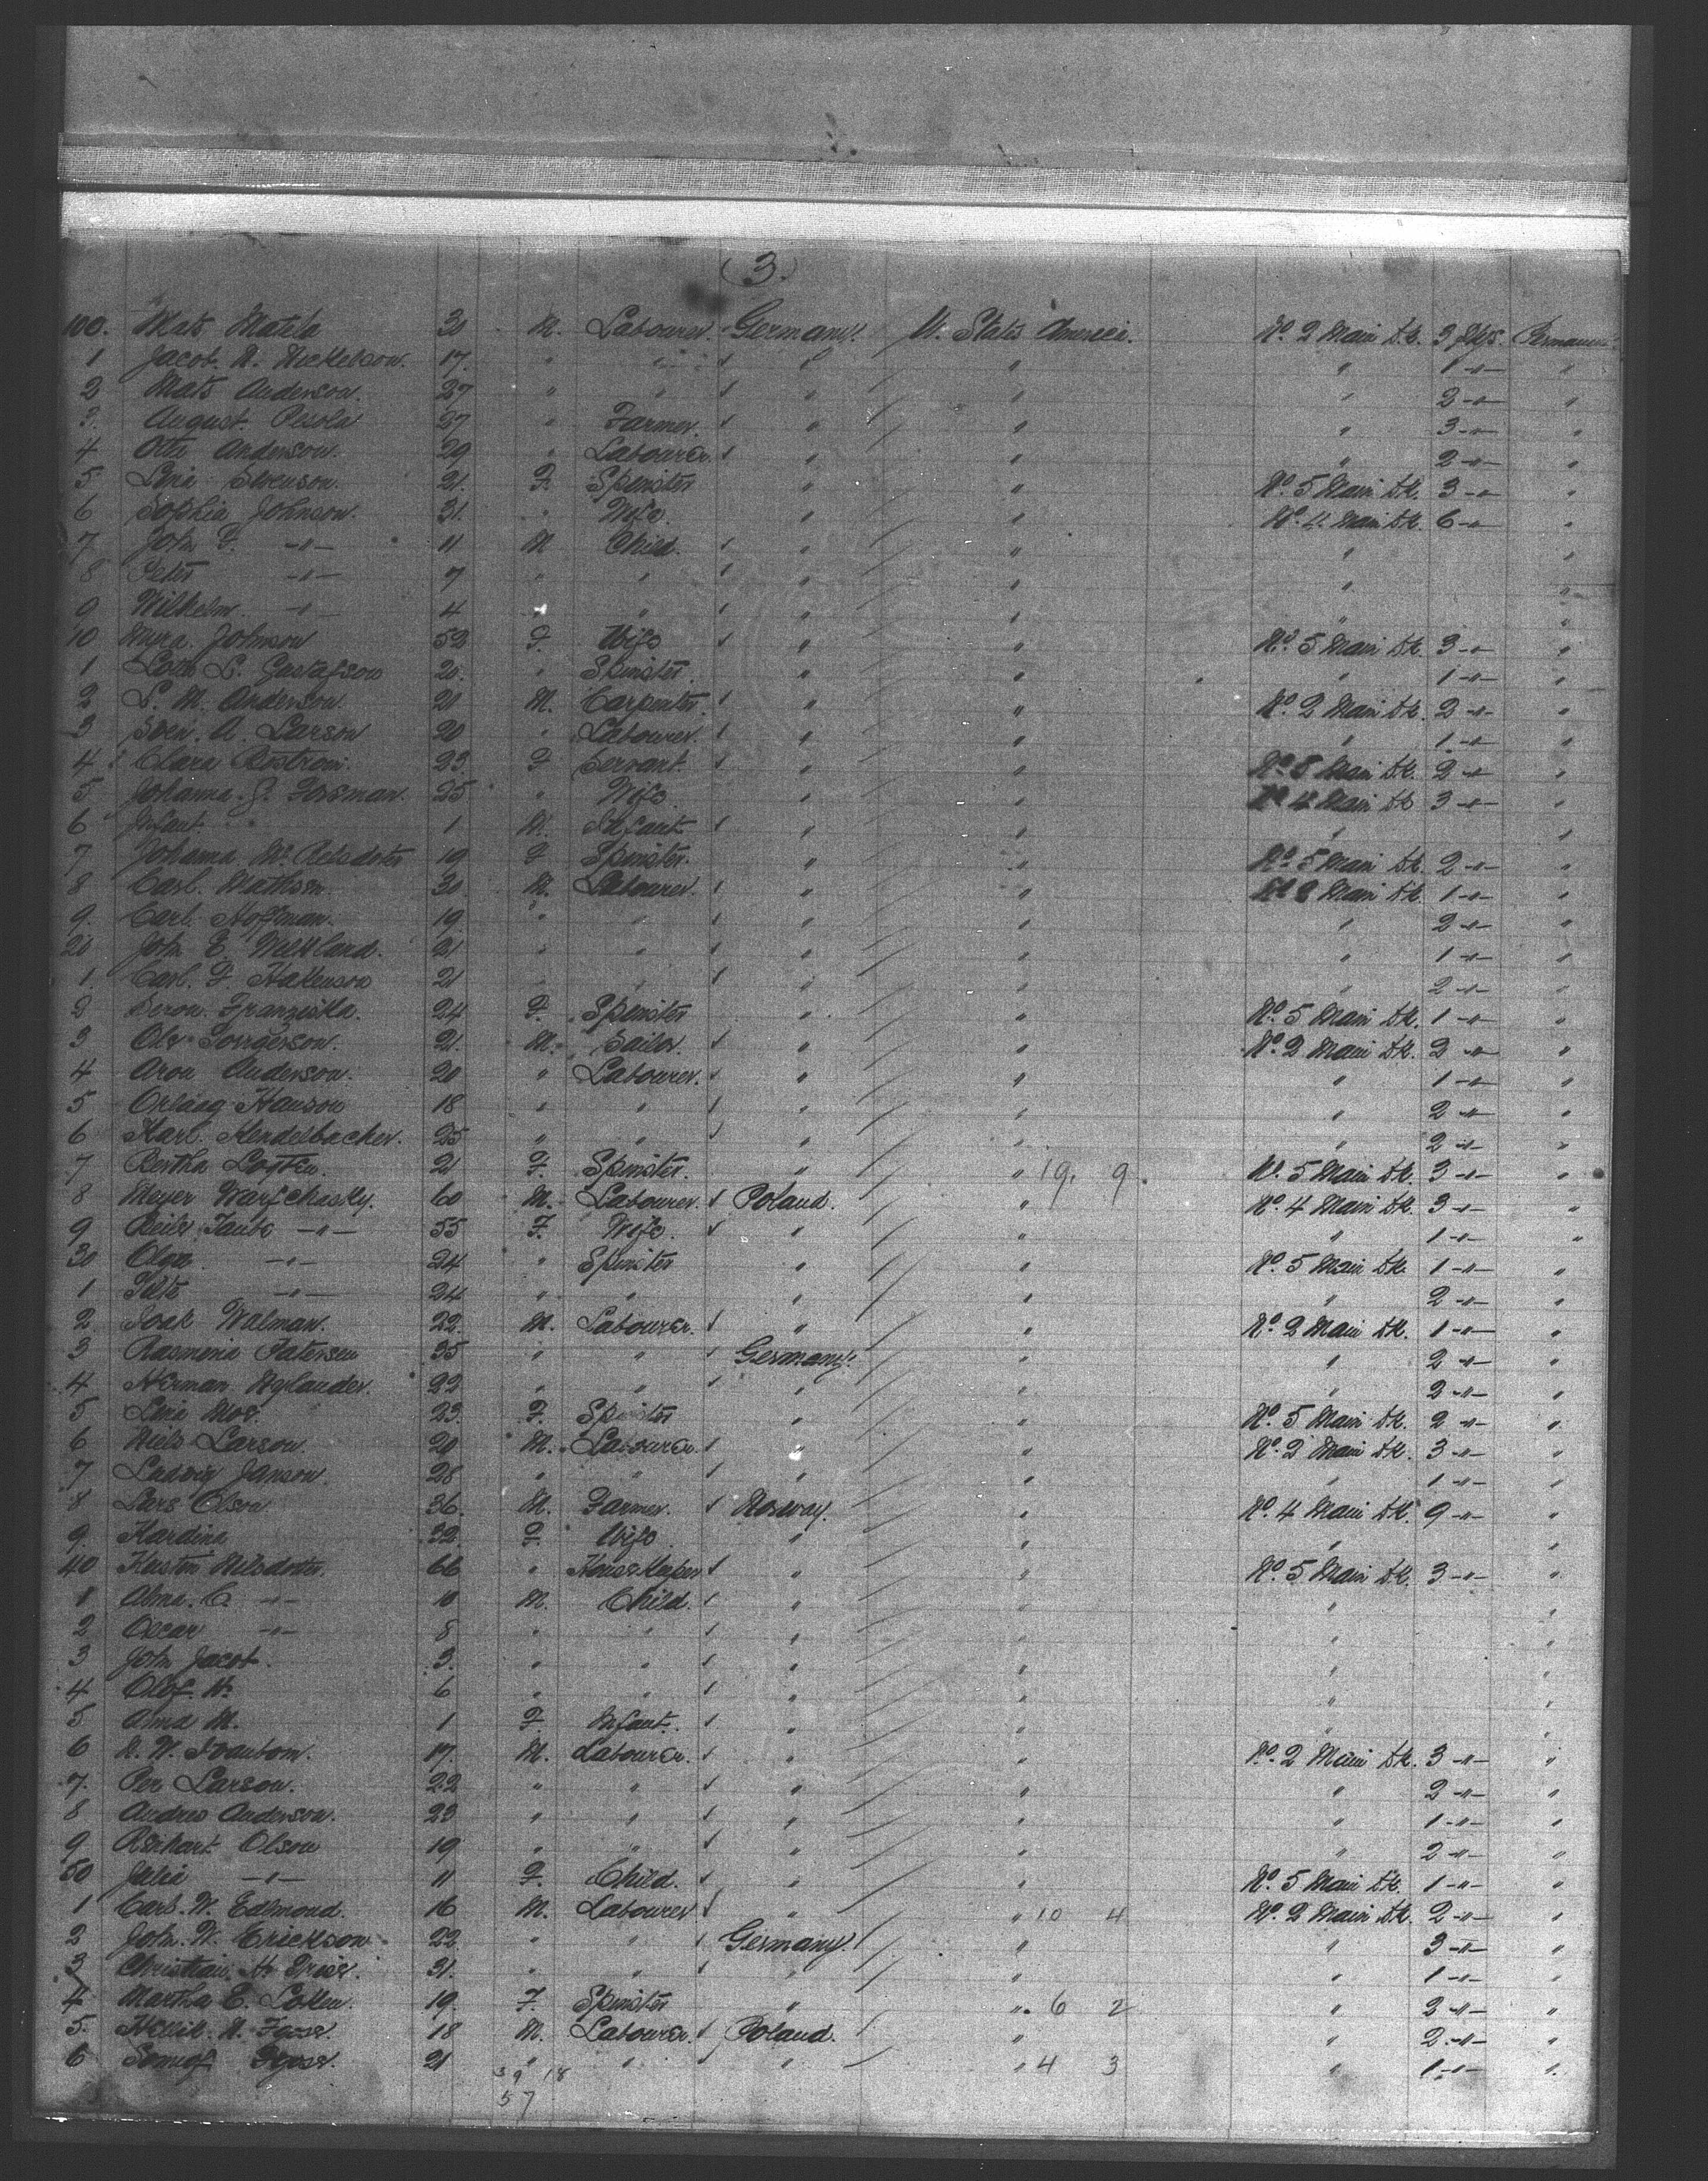 (3.)
100. Mats Matela 30 M. Labourer. Germany. U. States America. No. 2 Main Dk. 3 Pkgs. Permanent
1 Jacob. N. Nickelson. 17. " " " " " 1 -"- "
2 Mats Anderson. 27 " " " " " 2 -"- "
3. August. Pesola 27 " Farmer. " " " 3 -"- "
4 Otto Anderson. 29 " Labourer. " " " 2 -"- "
5 Lina Swenson. 21. F. Spinster " " No. 5 Main Dk. 3 -"- "
6 Sophia Johnson. 31. " Wife. " " No. 4 Main Dk. 6 -"- "
7 John F. -"- 11 M Child. " " " "
8 Peter -"- 7 " " " " " "
9 Wilhelm -"- 4 " " " " " "
10 Johnson 52 F. Wife " " No. 5 Main Dk. 3 -"- "
1 Gustafson 20. " Spinster. " " " 1 -"- "
2 L. M. Anderson. 21 M. Carpenter. " " No. 2 Main Dk. 2 -"- "
3 Sven. A. Larson 20 " Labourer. " " " 1 -"- "
4 Clara 23 F Servant. " " No. 5 Main Dk. 2 -"- "
5 Johanna. G. Forsman. 25 " Wife. " " No. 4 Main Dk 3 -"- "
6 Infant. 1 M. Infant " " " "
7 Johanna 19 F Spinster. " " No. 5 Main Dk. 2 -"- "
8 Carl. Mattson. 30. M. Labourer. " " No. 2 Main Dk. 1 -"- "
9. Carl. Hoffman. 19 " " " " " 2 -"- "
20 John E. 21 " " " " " 1 -"- "
1. Carl. F. Hakenson 21 " " " " " 2 -"- "
2 Franziska. 24 F. Spinster " " No. 5 Main Dk. 1 -"- "
3 21. M. Sailor. " " No. 2 Main Dk. 2 -"- "
4 Aron Anderson. 20 " Labourer. " " " 1 -"- "
5 Hanson 18 " " " " " 2 -"- "
6 Karl. Hendelbacher. 25 " " " " " 2 -"- "
7 Bertha 21 F. Spinster. " " 19. 9. No. 5 Main Dk. 3 -"- "
8 Meyer 60 M. Labourer. Poland. " No. 4 Main Dk. 3 -"- "
9 Taube -"- 55 F. Wife. " " " 1 -"- "
30 Olga -"- 24 " Spinster " " No. 5 Main Dk. 1 -"- "
1 -"- 24 " " " " " 2 -"- "
2 Walman. 22. M. Labourer. " " No. 2 Main Dk. 1 -"- "
3 35 " " Germany. " " 2 -"- "
4 Herman 22 " " " " " 2 -"- "
5 Lina 23. F. Spinster " " No. 5 Main Dk. 2 -"- "
6 Nils Larson. 20 M. Labourer. " " No. 2 Main Dk. 3 -"- "
7 Ludvig Janson. 28 " " " " " 1 -"- "
8 Lars Olson 36. M. Farmer. Norway. " No. 4 Main Dk. 9 -"- "
9. Kardina 32. F. Wife " " " "
40 Nilsdotter. 66 " House Keeper " " No. 5 Main Dk. 3 -"- "
1 Alma. C. -"- 10 M. Child. " " " "
2 Oscar -"- 8 " " " " " "
3 John Jacob. 3. " " " " " "
4 Olof. N. 6 " " " " " "
5 Alma M. 1 F. Infant. " " " "
6 17. M. Labourer. " " No. 2 Main Dk. 3 -"- "
7. Per Larson. 22 " " " " " 2 -"- "
8 Andres Anderson. 23 " " " " " 1 -"- "
9 Olson 19 " " " " " 2 -"- "
50 Julia -"- 11 F. Child. " " No. 5 Main Dk. 1 -"- "
1 Carl. W. Edlmond. 16 M. Labourer " " 10 4 No. 2 Main Dk. 2 -"- "
2 John. W. Erickson 22 " " Germany. " " 3 -"- "
3 Christian. 31. " " " " " 1 -"- "
4 Martha E. 19. F. Spinster " " 6 2 " 2 -"- "
5. 18 M. Labourer. Poland. " " 2 -"- "
6 21 " " " " 4 3 " 1 -"- "
39 18
57